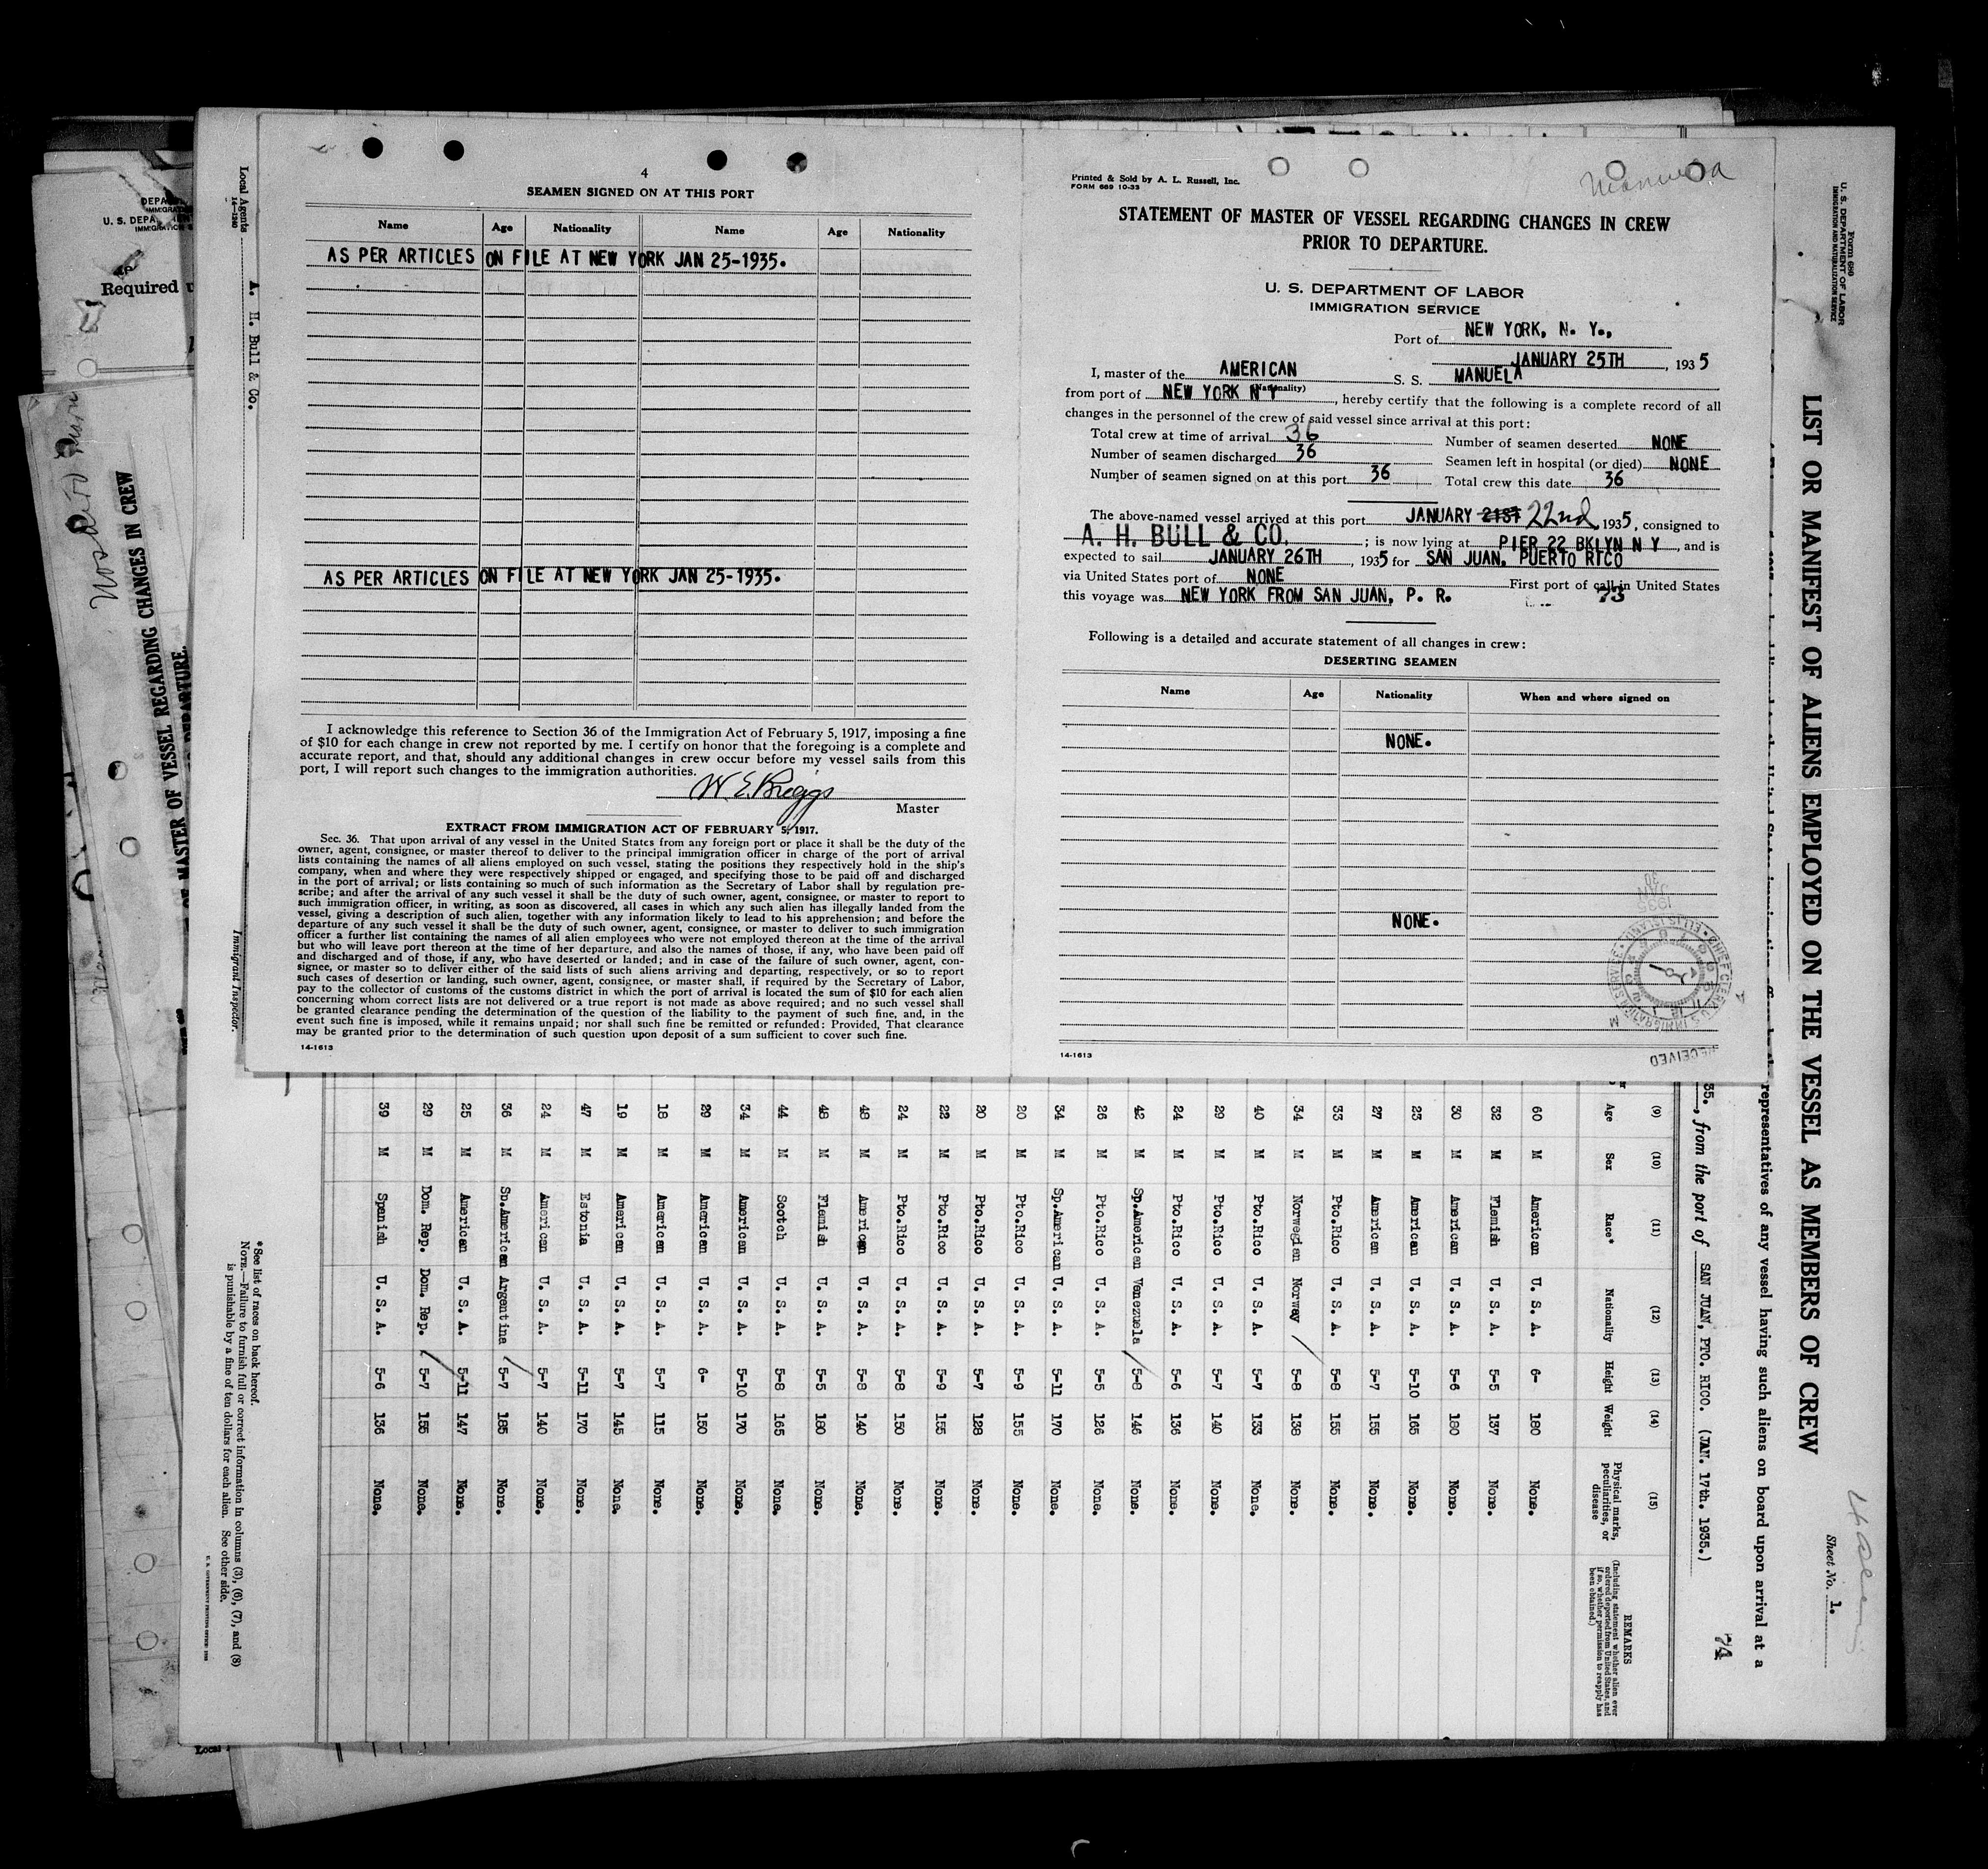 4
SEAMEN SIGNED ON AT THIS PORT
Name Age Nationality Name Age Nationality
AS PER ARTICLES ON FILE AT NEW YORK JAN 25-1935.
AS PER ARTICLES ON FILE AT NEW YORK JAN 25-1935.
I acknowledge this reference to Section 36 of the Immigration Act of February 5, 1917, imposing a fine
of $10 for each change in crew not reported by me. I certify on honor that the foregoing is a complete and
accurate report, and that, should any additional changes in crew occur before my vessel sails from this
port, I will report such changes to the immigration authorities.
W. E. Briggs
Master
EXTRACT FROM IMMIGRATION ACT OF FEBRUARY 5, 1917.
Sec. 36. That upon arrival of any vessel in the United States from any foreign port or place it shall be the duty of the
owner, agent, consignee, or master thereof to deliver to the principal immigration officer in charge of the port of arrival
lists containing the names of all aliens employed on such vessel, stating the positions they respectively hold in the ship's
company, when and where they were respectively shipped or engaged, and specifying those to be paid off and discharged
in the port of arrival; or lists containing so much of such information as the Secretary of Labor shall by regulation pre-
scribe; and after the arrival of any such vessel it shall be the duty of such owner, agent, consignee, or master to report to
such immigration officer, in writing, as soon as discovered, all cases in which any such alien has illegally landed from the
vessel, giving a description of such alien, together with any information likely to lead to his apprehension; and before the
departure of any such vessel it shall be the duty of such owner, agent, consignee, or master to deliver to such immigration
officer a further list containing the names of all alien employees who were not employed thereon at the time of the arrival
but who will leave port thereon at the time of her departure, and also the names of those, if any, who have been paid off
and discharged and of those, if any, who have deserted or landed; and in case of the failure of such owner, agent, con-
signee, or master so to deliver either of the said lists of such aliens arriving and departing, respectively, or so to report
such cases of desertion or landing, such owner, agent, consignee, or master shall, if required by the Secretary of Labor,
pay to the collector of customs of the customs district in which the port of arrival is located the sum of $10 for each alien
concerning whom correct lists are not delivered or a true report is not made as above required; and no such vessel shall
be granted clearance pending the determination of the question of the liability to the payment of such fine, and, in the
event such fine is imposed, while it remains unpaid; nor shall such fine be remitted or refunded: Provided, That clearance
may be granted prior to the determination of such question upon deposit of a sum sufficient to cover such fine.
14-1613
Printed & Sold by A. L. Russell, Inc.
FORM 689 10-33
Manuela
STATEMENT OF MASTER OF VESSEL REGARDING CHANGES IN CREW
PRIOR TO DEPARTURE.
U. S. DEPARTMENT OF LABOR
IMMIGRATION SERVICE
Port of NEW YORK, N. Y.,
JANUARY 25TH, 1935
I, master of the AMERICAN S. S. MANUELA
(Nationality)
from port of NEW YORK N Y, hereby certify that the following is a complete record of all
changes in the personnel of the crew of said vessel since arrival at this port:
Total crew at time of arrival 36 Number of seamen deserted NONE
Number of seamen discharged 36 Seamen left in hospital (or died) NONE
Number of seamen signed on at this port 36 Total crew this date 36
The above-named vessel arrived at this port JANUARY 21ST 22nd, 1935, consigned to
A. H. BULL & CO. ; is now lying at PIER 22 BKLYN N Y, and is
expected to sail JANUARY 26TH, 1935 for SAN JUAN. PUERTO RICO
via United States port of NONE First port of call in United States
this voyage was NEW YORK FROM SAN JUAN, P. R. 73
Following is a detailed and accurate statement of all changes in crew:
DESERTING SEAMEN
Name Age Nationality When and where signed on
NONE.
NONE.
RECEIVED
14-1613
Form 680
U. S. DEPARTMENT OF LABOR
IMMIGRATION AND NATURALIZATION SERVICE
LIST OR MANIFEST OF ALIENS EMPLOYED ON THE VESSEL AS MEMBERS OF CREW
Sheet No. 1.
representatives of any vessel having such aliens on board upon arrival at a
35., from the port of SAN JUAN, PTO. RICO. (JAN. 17th. 1935.)
74
(9) (10) (11) (12) (13) (14) (15)
Age Sex Race* Nationality Height Weight Physical marks, peculiarities, or disease
REMARKS
(Including statement whether alien ever ordered deported from United States, and if so, whether permission to reapply has been obtained.)
60 M American U. S. A. 6- 180 None.
32 M Flemish U. S. A. 5-5 137 None.
30 M American U. S. A. 5-6 180 None.
23 M American U. S. A. 5-10 165 None.
27 M American U. S. A. 5-7 155 None.
33 M Pto.Rico U. S. A. 5-8 155 None.
34 M Norwegian Norway 5-8 138 None.
40 M Pto.Rico U. S. A. 5-7 133 None.
29 M Pto.Rico U. S. A. 5-7 140 None.
24 M Pto.Rico U. S. A. 5-6 136 None.
42 M Sp.American Venezuela 5-8 146 None.
26 M Pto.Rico U. S. A. 5-5 126 None.
34 M Sp.American U. S. A. 5-11 170 None.
20 M Pto.Rico U. S. A. 5-9 155 None.
20 M Pto.Rico U. S. A. 5-7 128 None.
22 M Pto.Rico U. S. A. 5-9 155 None.
24 M Pto.Rico U. S. A. 5-8 150 None.
48 M American U. S. A. 5-8 140 None.
48 M Flemish U. S. A. 5-5 180 None.
44 M Scotch U. S. A. 5-8 165 None.
34 M American U. S. A. 5-10 170 None.
29 M American U. S. A. 6- 150 None.
18 M American U. S. A. 5-7 115 None.
19 M American U. S. A. 5-7 145 None.
47 M Estonia U. S. A. 5-11 170 None.
24 M American U. S. A. 5-7 140 None.
36 M Sp.American Argentina 5-7 185 None.
25 M American U. S. A. 5-11 147 None.
29 M Dom. Rep. Dom. Rep. 5-7 155 None.
39 M Spanish U. S. A. 5-6 136 None.
*See list of races on back hereof.
NOTE.—Failure to furnish full or correct information in columns (3), (6), (7), and (8)
is punishable by a fine of ten dollars for each alien. See other side.
Local Agents A. H. Bull & Co.
Immigrant Inspector.
Required
CHANGES IN CREW
MASTER OF VESSEL REGARDING CHANGES IN CREW